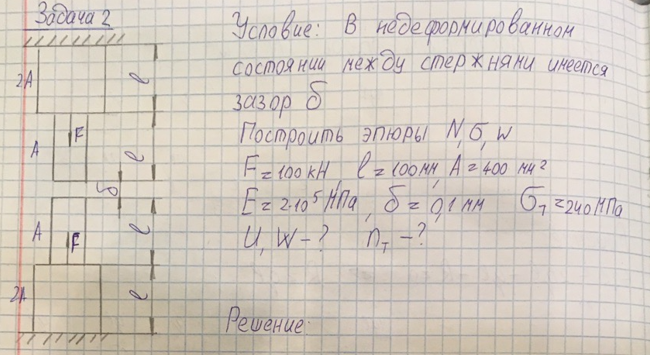 Задача 2
Условие: В недеформированном
состоянии между стержнями имеется
зазор δ
Построить эпюры N, σ, w
F=100кН, l=100мм, A=400 мм²
E=2·10⁵ МПа, δ=0,1 мм σт=240МПа
U, W-? nт-?
Решение:
2A
l
F
A
l
δ
A
F
l
2A
l